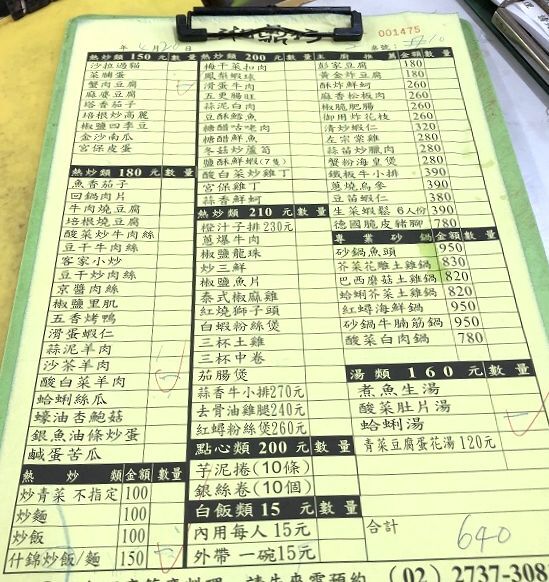 001475
年 4月20日 桌號:
熱炒類 150 元 數量
沙拉過貓
菜脯蛋
蟹肉豆腐
麻婆豆腐
塔香茄子
培根炒高麗
椒鹽四季豆
金沙南瓜
宮保皮蛋
熱炒類 180 元 數量
魚香茄子
回鍋肉片
牛肉燒豆腐
培根燒豆腐
酸菜炒牛肉絲
豆干牛肉絲
客家小炒
豆干炒肉絲
京醬肉絲
椒鹽里肌
五香烤鴨
滑蛋蝦仁
蒜泥羊肉
沙茶羊肉
酸白菜羊肉
蛤蜊絲瓜
蠔油杏鮑菇
銀魚油條炒蛋
鹹蛋苦瓜
熱炒類 金額 數量
炒青菜 不指定 100
炒麵 100
炒飯 100
什錦炒飯/麵 150
熱炒類 200 元 數量
梅干菜扣肉
鳳梨蝦球
滑蛋牛肉
五更腸旺
蒜泥白肉
豆酥鱈魚
糖醋咕咾肉
糖醋鮮魚
冬菇炒蘆筍
鹽酥鮮蝦(7隻)
酸白菜炒雞丁
宮保雞丁
蒜香鮮蚵
熱炒類 210 元 數量
橙汁子排230元
蔥爆牛肉
椒鹽龍珠
炒三鮮
椒鹽魚片
泰式椒麻雞
紅燒獅子頭
白蝦粉絲煲
三杯土雞
三杯中卷
茄腸煲
蒜香牛小排270元
去骨油雞腿240元
紅蟳粉絲煲260元
點心類 200 元 數量
芋泥捲(10條)
銀絲卷(10個)
白飯類 15 元 數量
內用每人 15元
外帶 一碗15元
主廚推薦 金額 數量
彭家豆腐 180
黃金炸豆腐 180
酥炸鮮蚵 260
麻香松板肉 260
椒脆肥腸 260
御用炸花枝 260
清炒蝦仁 320
左宗棠雞 280
蒜苗炒臘肉 280
蟹粉海皇煲 280
鐵板牛小排 390
蔥燒烏參 390
豆苗蝦仁 380
生菜蝦鬆 6人份 390
德國脆皮豬腳 780
專業砂鍋 金額 數量
砂鍋魚頭 950
芥菜花雕土雞鍋 830
巴西蘑菇土雞鍋 820
蛤蜊芥菜土雞鍋 820
紅蟳海鮮鍋 950
砂鍋牛腩筋鍋 950
酸菜白肉鍋 780
湯類 160 元 數量
煮魚生湯
酸菜肚片湯
蛤蜊湯
青菜豆腐蛋花湯120元
合計 640
請先來電預約 (02) 2737-308